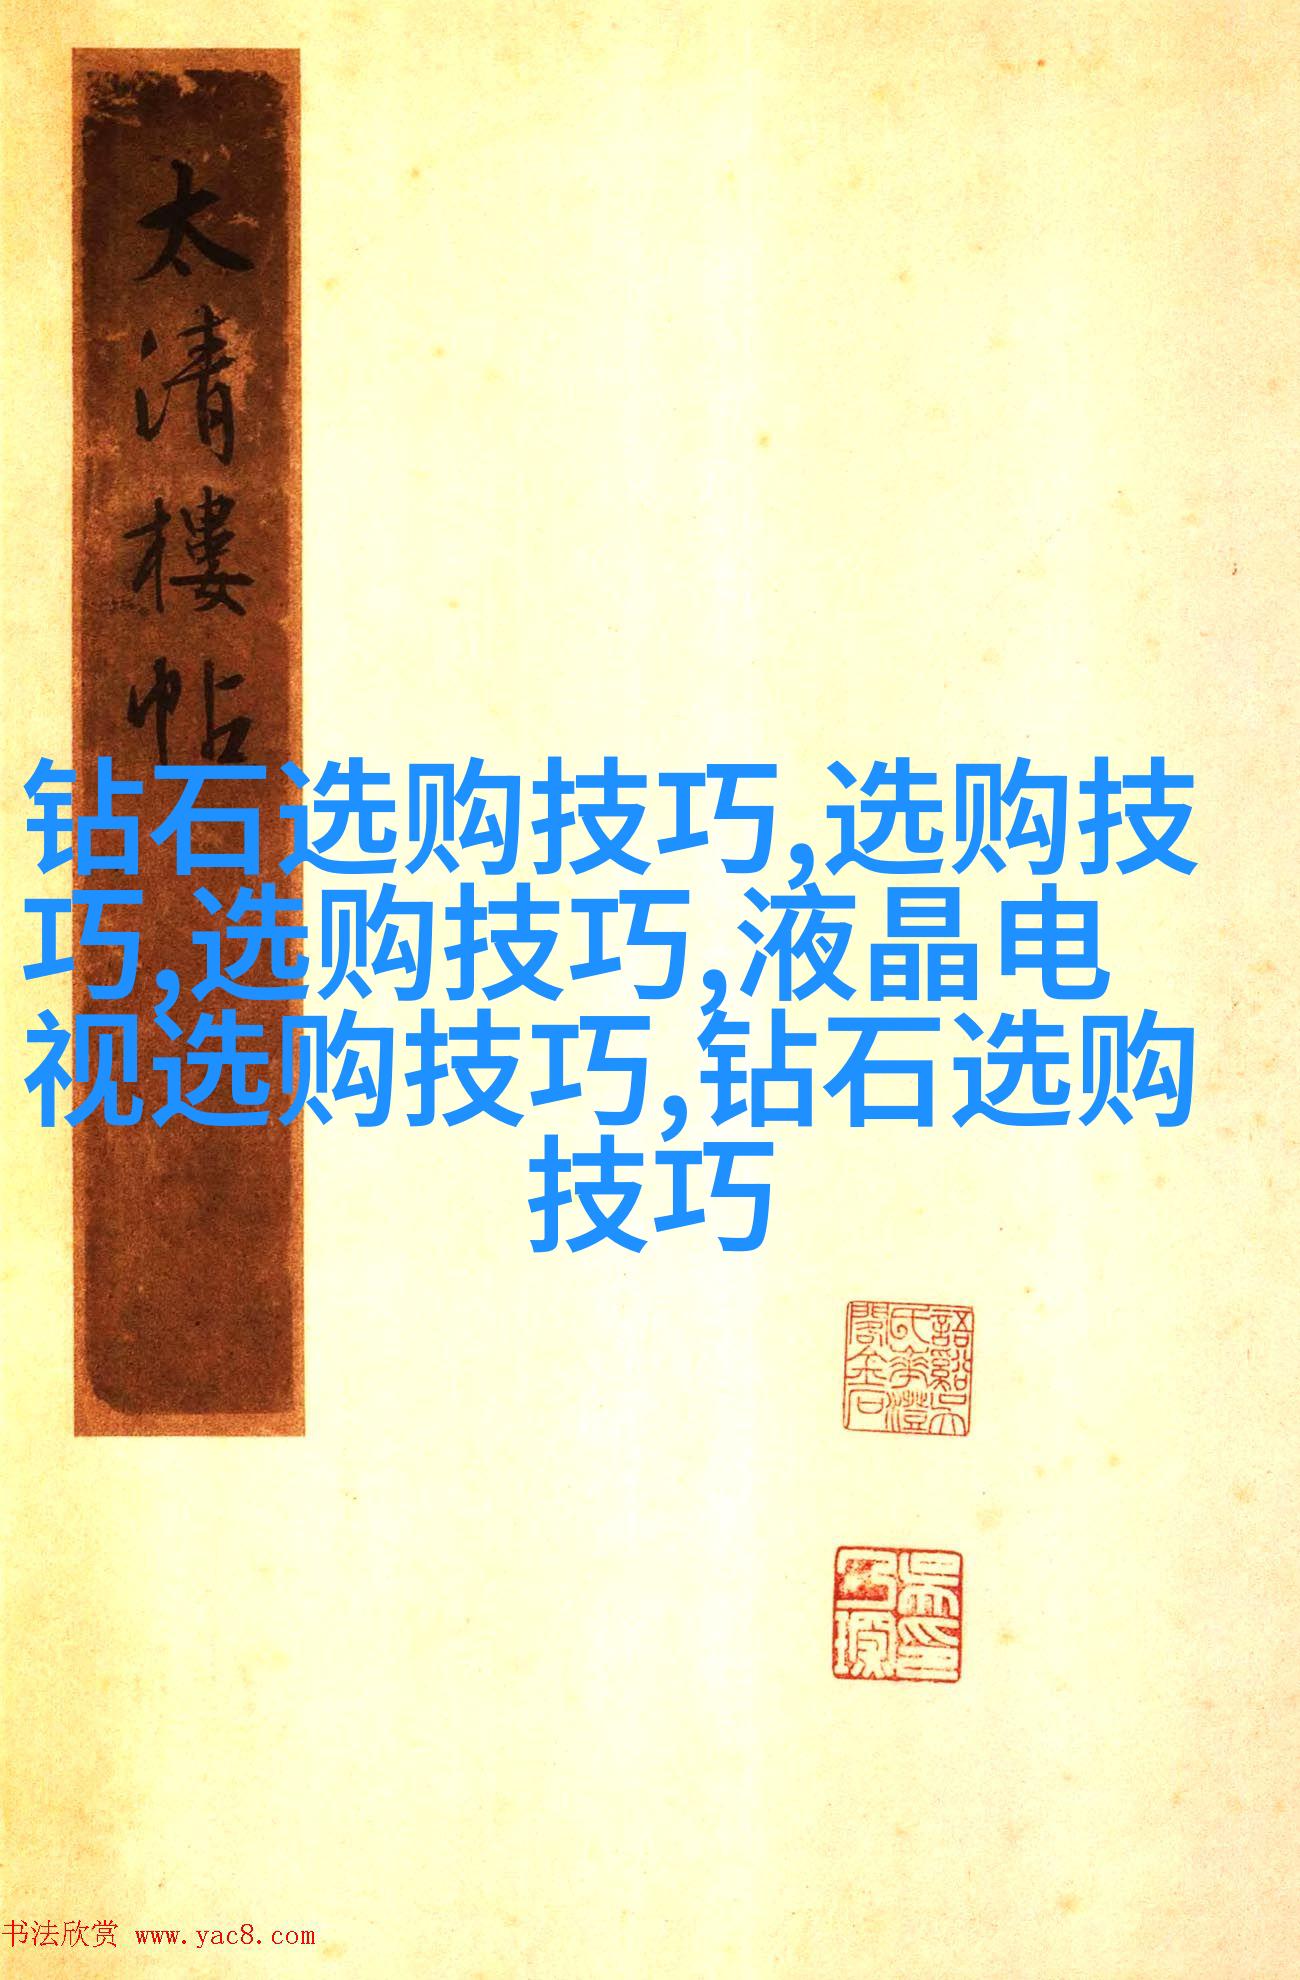 太清樓帖
钻石选购技巧,选购技
巧,选购技巧,液晶电
视选购技巧,钻石选购
技巧
书法欣赏 www.yac8.com